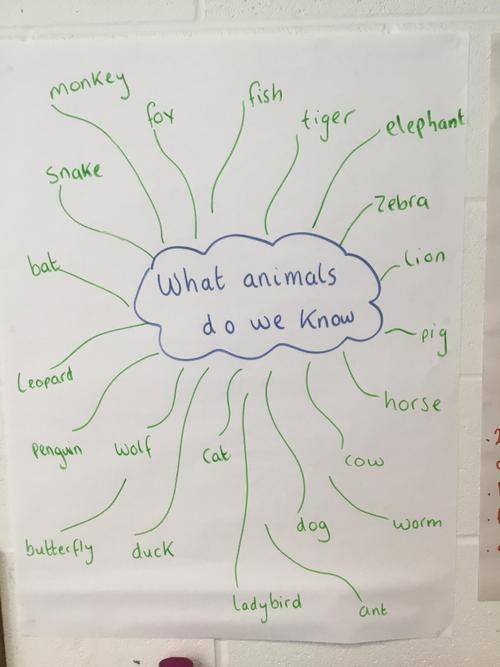 monkey
fox
fish
tiger
elephant
snake
zebra
bat
lion
What animals
do we know
pig
leopard
horse
penguin
wolf
cat
cow
butterfly
duck
dog
worm
ladybird
ant